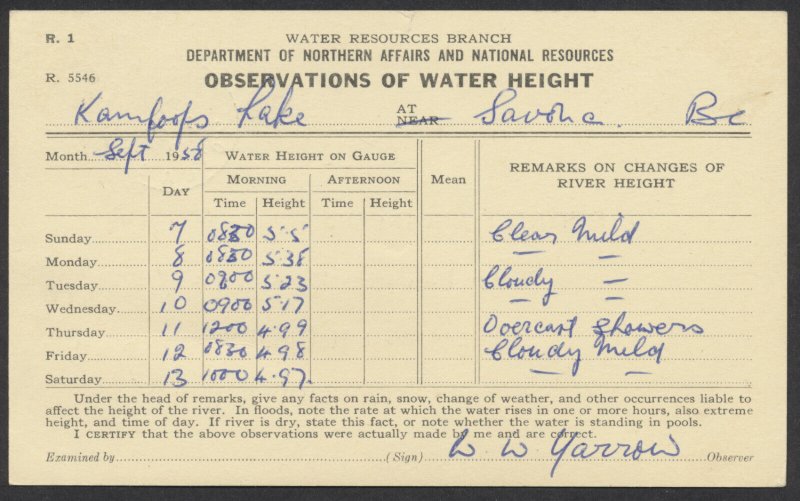 R. 1 WATER RESOURCES BRANCH
DEPARTMENT OF NORTHERN AFFAIRS AND NATIONAL RESOURCES
R. 5546 OBSERVATIONS OF WATER HEIGHT
Kamloops Lake AT NEAR Savona. Bc
Month Sept 1958 WATER HEIGHT ON GAUGE REMARKS ON CHANGES OF RIVER HEIGHT
DAY MORNING AFTERNOON Mean
Time Height Time Height
Sunday 7 0830 5.5 Clear Mild
Monday 8 0830 5.38 — —
Tuesday 9 0900 5.23 Cloudy —
Wednesday 10 0900 5.17 — —
Thursday 11 1200 4.99 Overcast Showers
Friday 12 0830 4.98 Cloudy Mild
Saturday 13 1000 4.97. — —
Under the head of remarks, give any facts on rain, snow, change of weather, and other occurrences liable to
affect the height of the river. In floods, note the rate at which the water rises in one or more hours, also extreme
height, and time of day. If river is dry, state this fact, or note whether the water is standing in pools.
I CERTIFY that the above observations were actually made by me and are correct.
Examined by (Sign) W Yarrow Observer